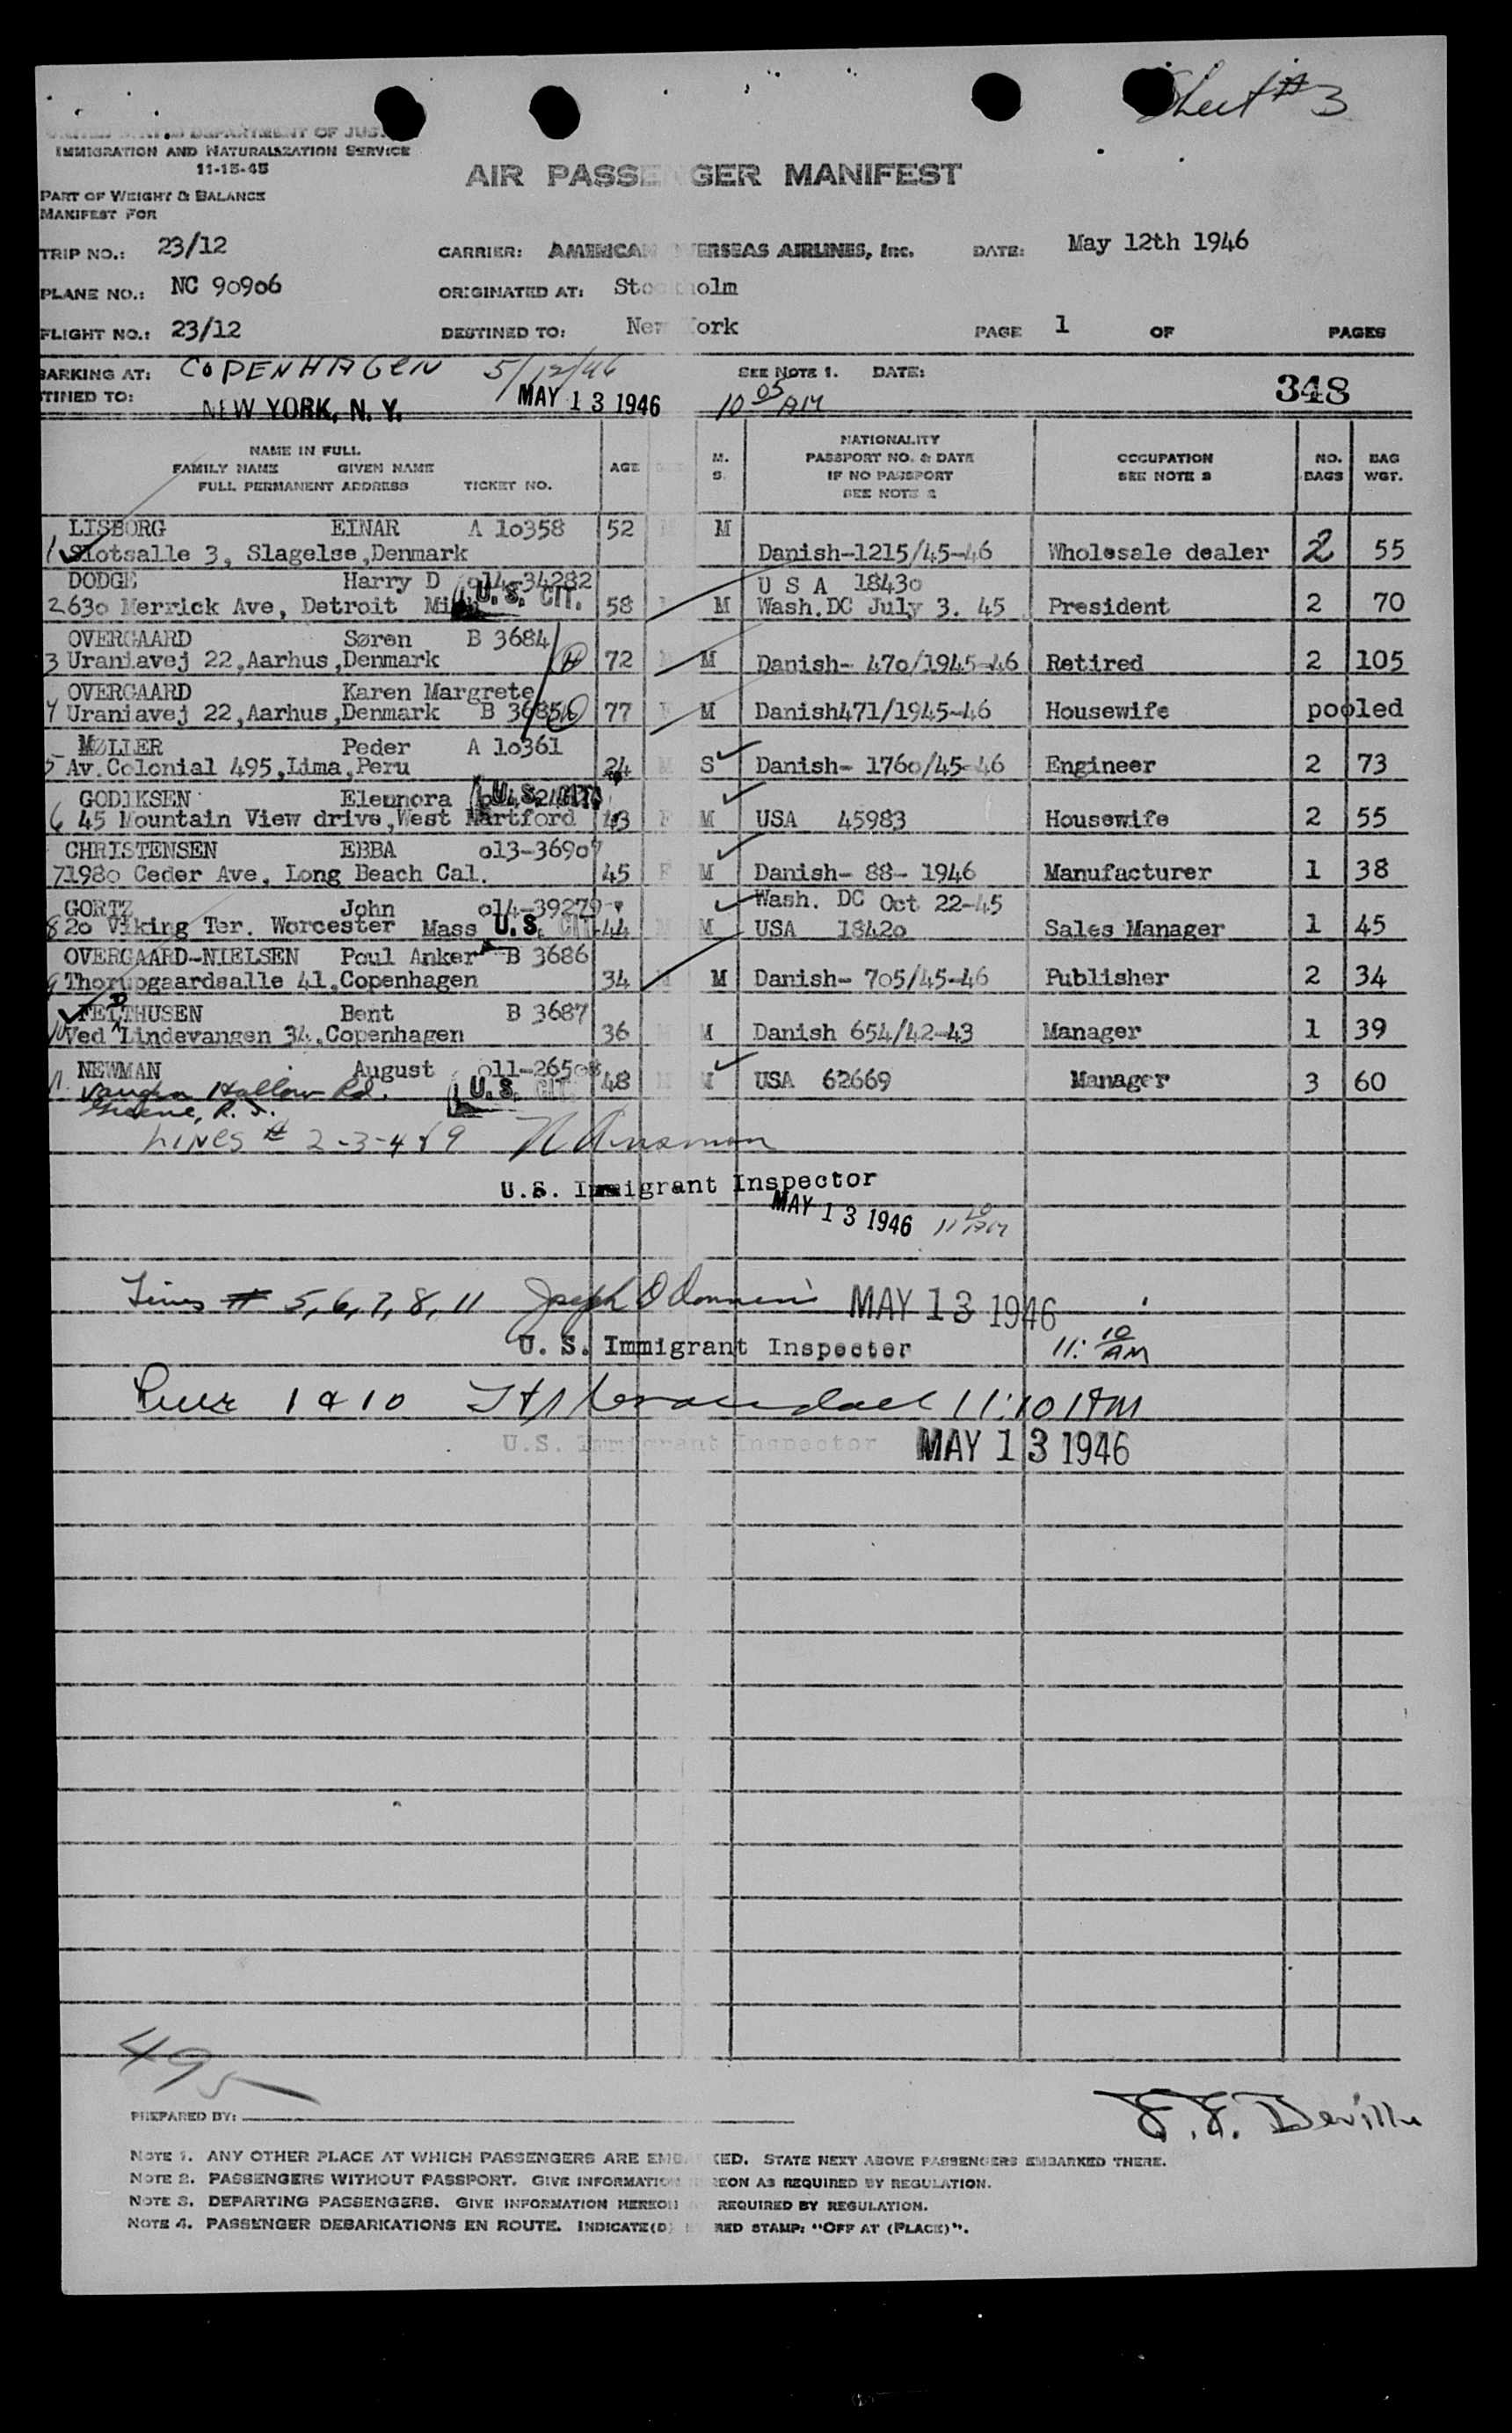 Sheet # 3
UNITED STATES DEPARTMENT OF JUS
IMMIGRATION AND NATURALIZATION SERVICE
11-15-45
AIR PASSENGER MANIFEST
PART OF WEIGHT & BALANCE
MANIFEST FOR
TRIP NO.: 23/12 CARRIER: AMERICAN OVERSEAS AIRLINES, Inc. DATE: May 12th 1946
PLANE NO.: NC 90906 ORIGINATED AT: Stockholm
FLIGHT NO.: 23/12 DESTINED TO: New York PAGE 1 OF PAGES
BARKING AT: COPENHAGEN 5/12/46 SEE NOTE 1. DATE:
TINED TO: NEW YORK, N. Y. MAY 13 1946 10 05 AM 348
NAME IN FULL
FAMILY NAME GIVEN NAME
FULL PERMANENT ADDRESS TICKET NO. AGE M. S. NATIONALITY PASSPORT NO. & DATE IF NO PASSPORT SEE NOTE 2 OCCUPATION SEE NOTE 3 NO. BAGS BAG WGT.
LISBORG EINAR A 10358 52 M M
1 Slotsalle 3, Slagelse,Denmark Danish-1215/45-46 Wholesale dealer 2 55
DODGE Harry D 014-34282 U S A 18430
2 630 Merrick Ave, Detroit Mi U.S. CIT. 58 M Wash.DC July 3. 45 President 2 70
OVERGAARD Søren B 3684
3 Uraniavej 22,Aarhus,Denmark 72 M Danish- 470/1945-46 Retired 2 105
OVERGAARD Karen Margrete
4 Uraniavej 22,Aarhus,Denmark B 3685 77 M Danish471/1945-46 Housewife pooled
MØLLER Peder A 10361
5 Av.Colonial 495,Lima,Peru 24 M S Danish- 1760/45-46 Engineer 2 73
GODIKSEN Eleonora U.S. CIT.
6 45 Mountain View drive,West Hartford 43 F M USA 45983 Housewife 2 55
CHRISTENSEN EBBA 013-36907
7 1980 Ceder Ave, Long Beach Cal. 45 F M Danish- 88- 1946 Manufacturer 1 38
GORTZ John 014-39279 Wash. DC Oct 22-45
8 20 Viking Ter. Worcester Mass U.S. CIT 44 M M USA 18420 Sales Manager 1 45
OVERGAARD-NIELSEN Poul Anker B 3686
9 Thorupgaardsalle 41,Copenhagen 34 M M Danish- 705/45-46 Publisher 2 34
FELDTHUSEN Bent B 3687
10 Ved Lindevangen 34,Copenhagen 36 M M Danish 654/42-43 Manager 1 39
NEWMAN August 011-26508
11. Vaughn Hollow Rd. U.S. CIT. 48 M M USA 62669 Manager 3 60
Greene, R.I.
LINES # 2-3-4 & 9
U.S. Immigrant Inspector
MAY 13 1946 11 10 AM
Lines # 5,6,7,8,11 Joseph O MAY 13 1946
U. S. Immigrant Inspector 11: 10 AM
1 & 10 11:10 AM
U.S. Immigrant Inspector MAY 13 1946
495
PREPARED BY:
Deville
NOTE 1. ANY OTHER PLACE AT WHICH PASSENGERS ARE EMBARKED. STATE NEXT ABOVE PASSENGERS EMBARKED THERE.
NOTE 2. PASSENGERS WITHOUT PASSPORT. GIVE INFORMATION HEREON AS REQUIRED BY REGULATION.
NOTE 3. DEPARTING PASSENGERS. GIVE INFORMATION HEREON REQUIRED BY REGULATION.
NOTE 4. PASSENGER DEBARKATIONS EN ROUTE. INDICATE(D) RED STAMP: "OFF AT (PLACE)".